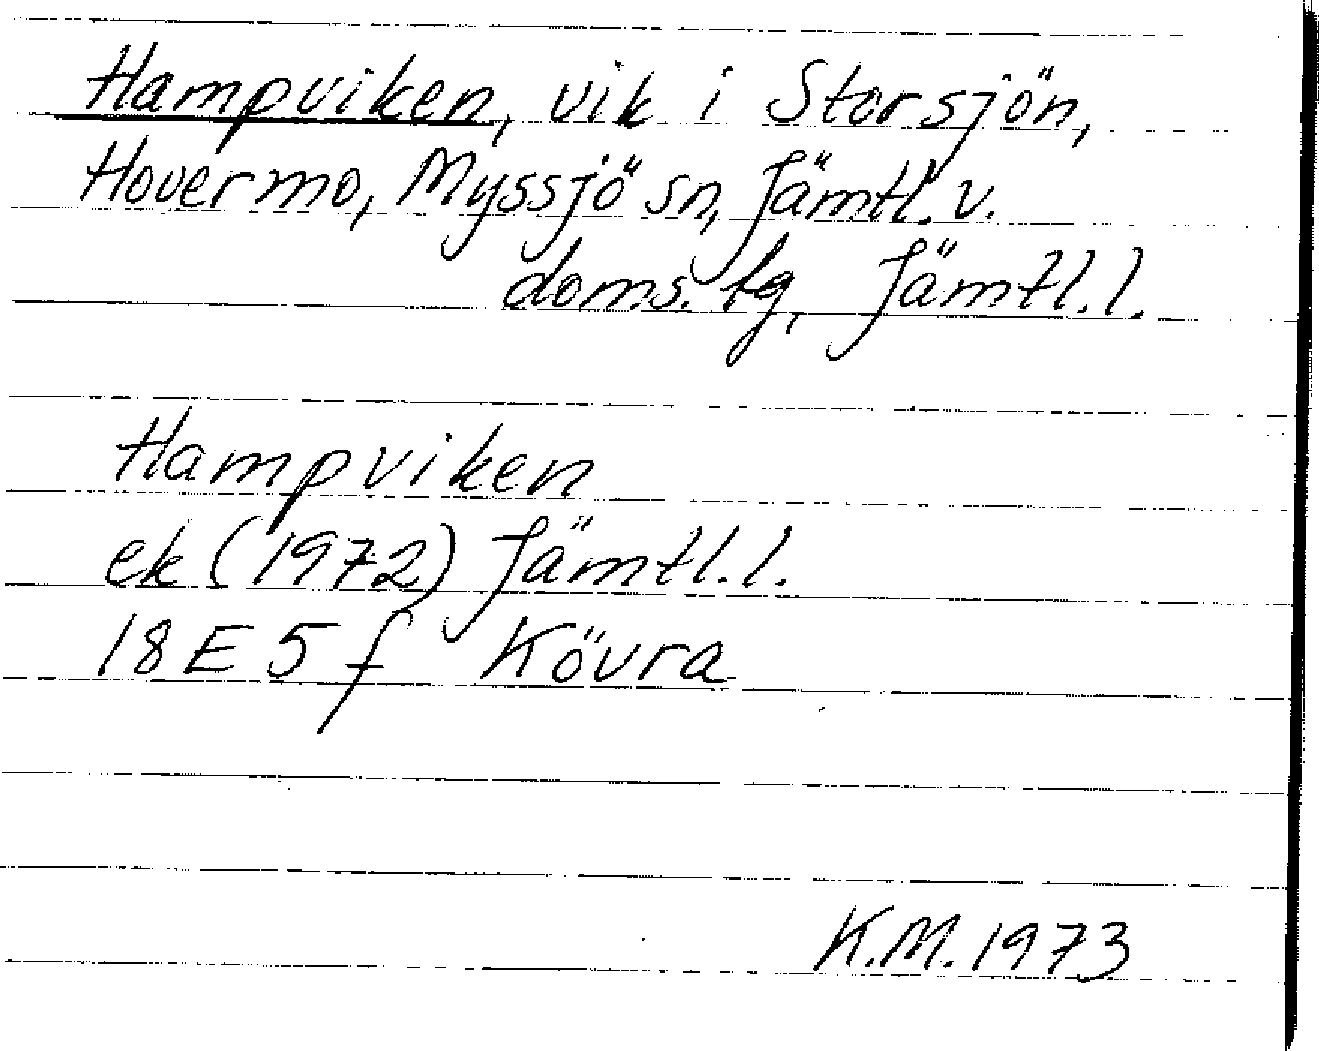 Hampviken, vik i Storsjön,
Hovermo, Myssjö sn, Jämtl. v.
doms. tg, Jämtl. l.
Hampviken
ek (1972) Jämtl. l.
18 E 5 f Kövra
K.M. 1973